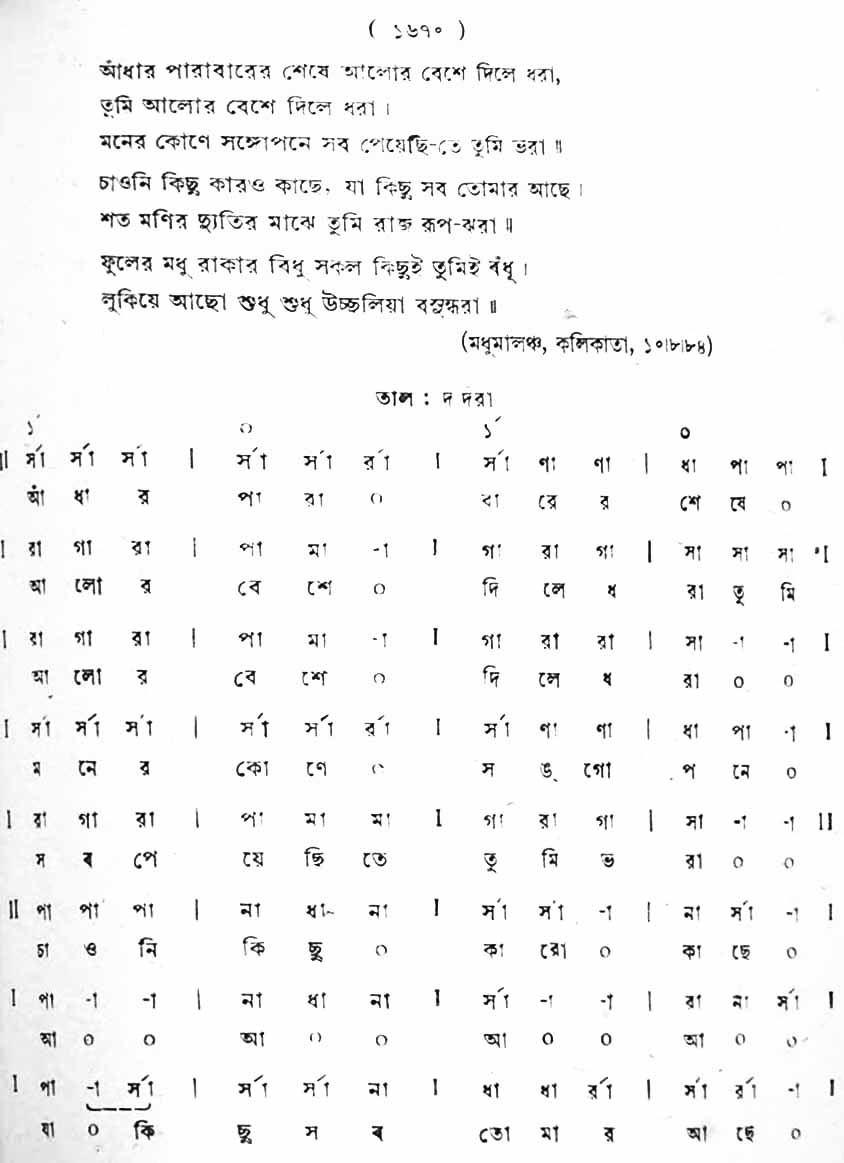 ( ১৬৭০ )
আঁধার পারাবারের শেষে আলোর বেশে দিলে ধরা,
তুমি আলোর বেশে দিলে ধরা ।
মনের কোণে সঙ্গোপনে সব পেয়েছি-তে তুমি ভরা ॥
চাওনি কিছু কারও কাছে, যা কিছু সব তোমার আছে ।
শত মণির দ্যুতির মাঝে তুমি রাজ রূপ-ঝরা ॥
ফুলের মধু রাকার বিধু সকল কিছুই তুমিই বঁধু ।
লুকিয়ে আছো শুধু শুধু উচ্ছলিয়া বসুন্ধরা ॥
(মধুমালঞ্চ, কলিকাতা, ১০৷৮৷৮৪)
তাল : দ দরা
১´ ০ ১´ ০
॥ র্সা র্সা র্সা | র্সা র্সা র্রা I র্সা ণা ণা | ধা পা পা I
আঁ ধা র পা রা ০ বা রে র শে ষে ০
I রা গা রা | পা মা -া I গা রা গা | সা সা সা I
আ লো র বে শে ০ দি লে ধ রা তু মি
I রা গা রা | পা মা -া I গা রা রা | সা -া -া I
আ লো র বে শে ০ দি লে ধ রা ০ ০
I র্সা র্সা র্সা | র্সা র্সা র্রা I র্সা ণা ণা | ধা পা -া I
ম নে র কো ণে ০ স ঙ্ গো প নে ০
I রা গা রা | পা মা মা I গা রা গা | সা -া -া II
স ব পে য়ে ছি তে তু মি ভ রা ০ ০
II পা পা পা | না ধা না I র্সা র্সা -া | না র্সা -া I
চা ও নি কি ছু ০ কা রো ০ কা ছে ০
I পা -া -া | না ধা না I র্সা -া -া | রা না র্সা I
আ ০ ০ আ ০ ০ আ ০ ০ আ ০ ০
I পা -া র্সা | র্সা র্সা না I ধা ধা র্রা | র্সা র্রা -া I
যা ০ কি ছু স ব তো মা র আ ছে ০